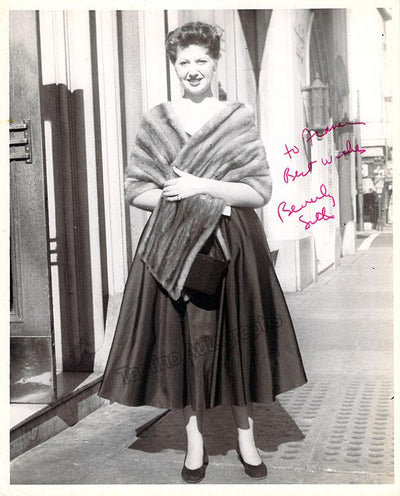 to
Best Wishes
Beverly
Sills
Tamino Autographs